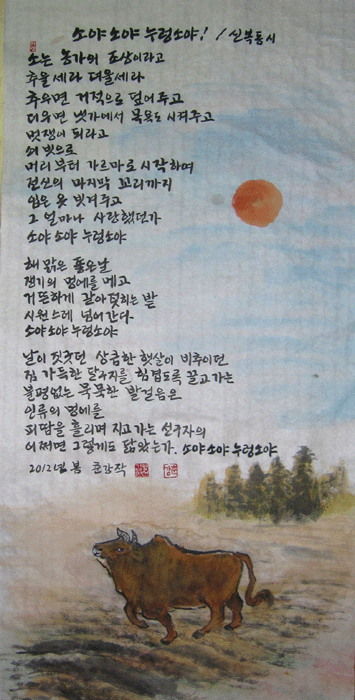 소야 소야 누렁소야! / 신복동시
소는 농가의 조상이라고
추울세라 더울세라
추우면 거적으로 덮어주고
더우면 냇가에서 목욕도 시켜주고
멋쟁이 되라고
쇠 빗으로
머리부터 가르마로 시작하여
전신의 마지막 꼬리까지
입은 옷 빗겨주고
그 얼마나 사랑했던가
소야 소야 누렁소야
해 맑은 좋은날
쟁기의 멍에를 메고
거뜬하게 갈아 덮히는 밭
시원스레 넘어간다
소야소야 누렁소야
날이 짓궂던 상큼한 햇살이 비추이던
짐 가득한 달구지를 힘겹도록 끌고가는
불평없는 묵묵한 발걸음은
인류의 멍에를
피땀을 흘리며 지고가는 선구자의
어쩌면 그렇게도 닮았는가. 소야소야 누렁소야
2012년 봄